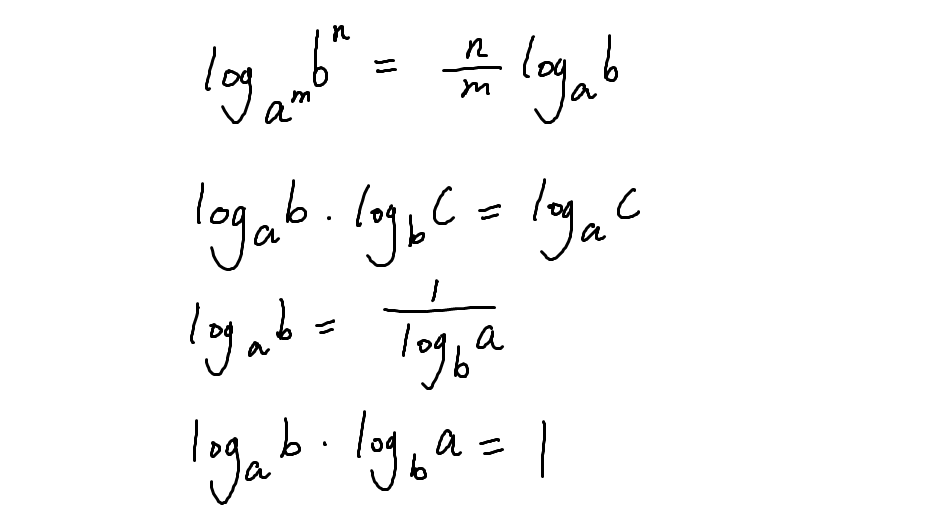 log_{a^m} b^n = \frac{n}{m} log_a b
log_a b · log_b c = log_a c
log_a b = \frac{1}{log_b a}
log_a b · log_b a = 1